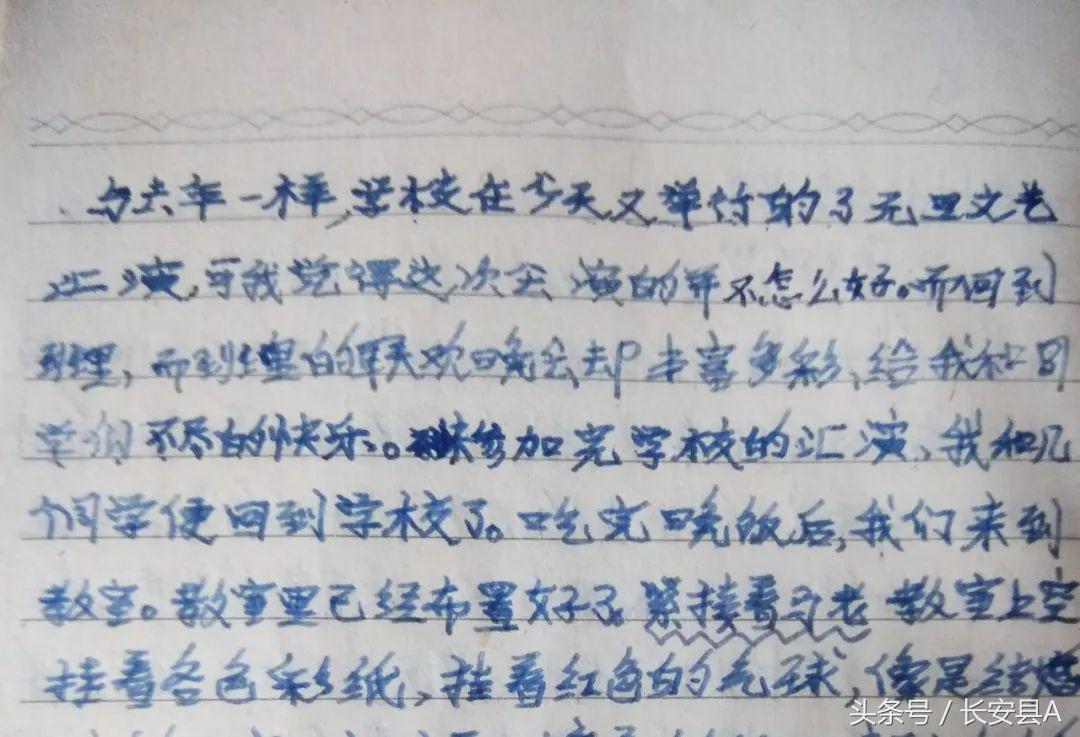 与去年一样,学校在今天又举行的了元旦文艺
汇演,可我觉得这次会演的并不怎么好。而回到
班里,而到班里的联欢晚会却丰富多彩,给我和同
学们不尽的快乐。参加完学校的汇演,我和几
个同学便回到学校了。吃完晚饭后,我们来到
教室。教室里已经布置好了。紧接着 教室上空
挂着各色彩纸,挂着红色的气球,像是结婚
头条号 / 长安县A